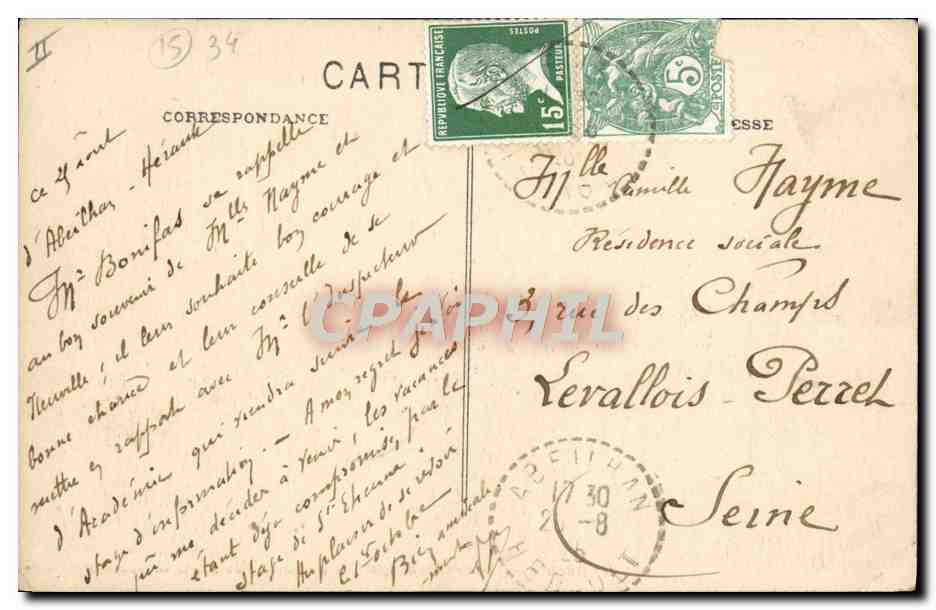 II
15 34
CART
CORRESPONDANCE
ESSE
REPUBLIQUE FRANÇAISE
POSTES
PASTEUR
15c
5c
POSTES
ce 25 août
d'Abeilhan - Hérault
Mr Bonifas se rappelle
au bon souvenir de Mlles Hayme et
Neuville ; il leur souhaite bon courage et
bonne chance et leur conseille de se
mettre en rapport avec Mr l'Inspecteur
d'Académie qui viendra suivre le
stage d'information - A mon regret je
me décider à venir, les vacances
étant déjà compromises par le
stage de St Etienne.
Au plaisir de se revoir
en Octobre
Bien amicale
Mlle Camille Hayme
Résidence sociale
3, rue des Champs
Levallois-Perret
Seine
ABEILHAN
17 30
2 -8
HERAULT
CPAPHIL